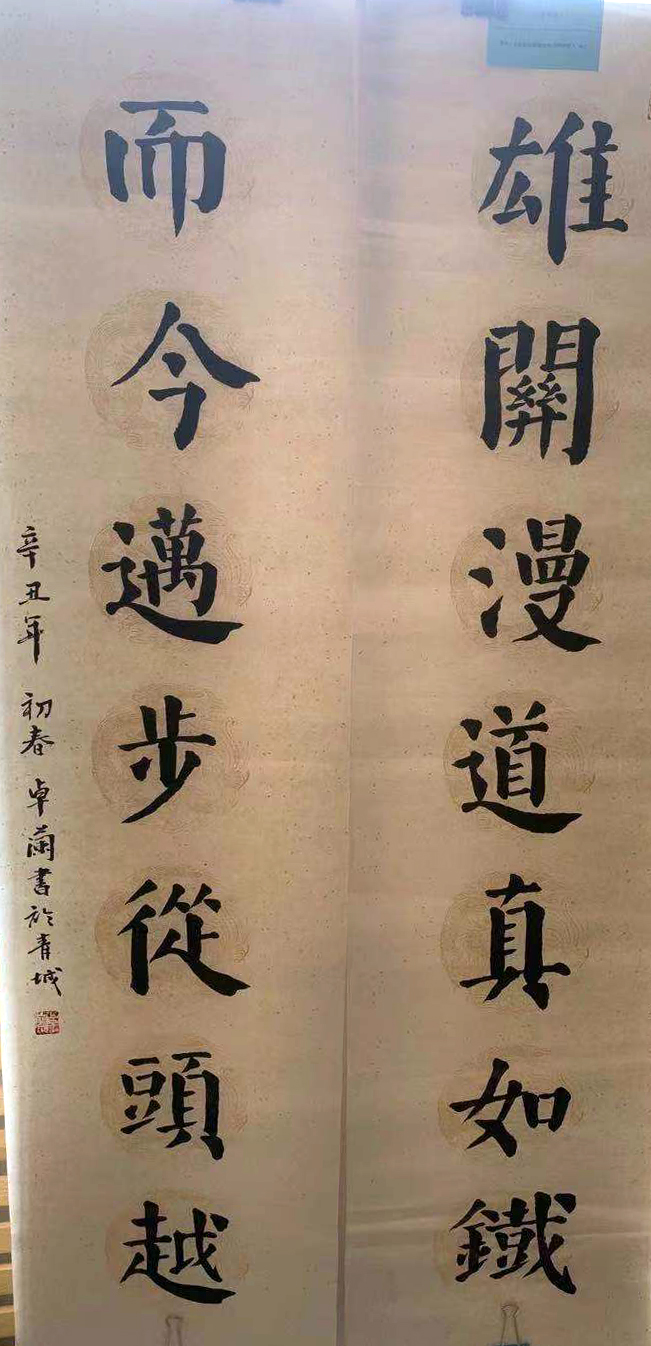 雄關漫道真如鐵
而今邁步從頭越
辛丑年 初春 卓蘭書於青城